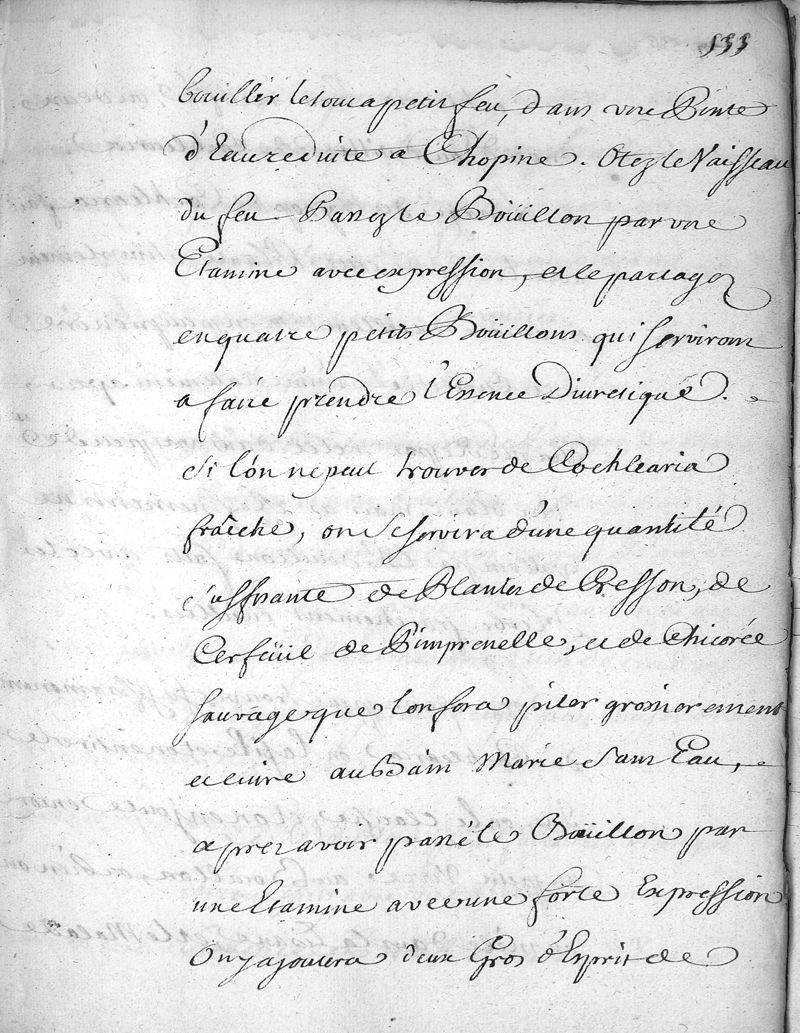 533
bouillir le tout a petit feu, dans une Pinte
d'Eau reduite a Chopine. Otez le Vaisseau
du feu Passez le Boüillon par une
Etamine avec expression, et le partagez
en quatre petits Boüillons qui serviront
a faire prendre l'Essence Diuretique.
Si l'on ne peut trouver de Cochlearia
fraîche, on se servira d'une quantité
suffisante de Plantes de Cresson, de
Cerfeüil de Pimprenelle, et de Chicorée
Sauvage que l'on fera piler grosierement
et cuire au Bain Marie sans Eau,
aprez avoir passé le Boüillon par
une Etamine avec une forte Expression
On y ajoutera deux Gros d'Esprit de